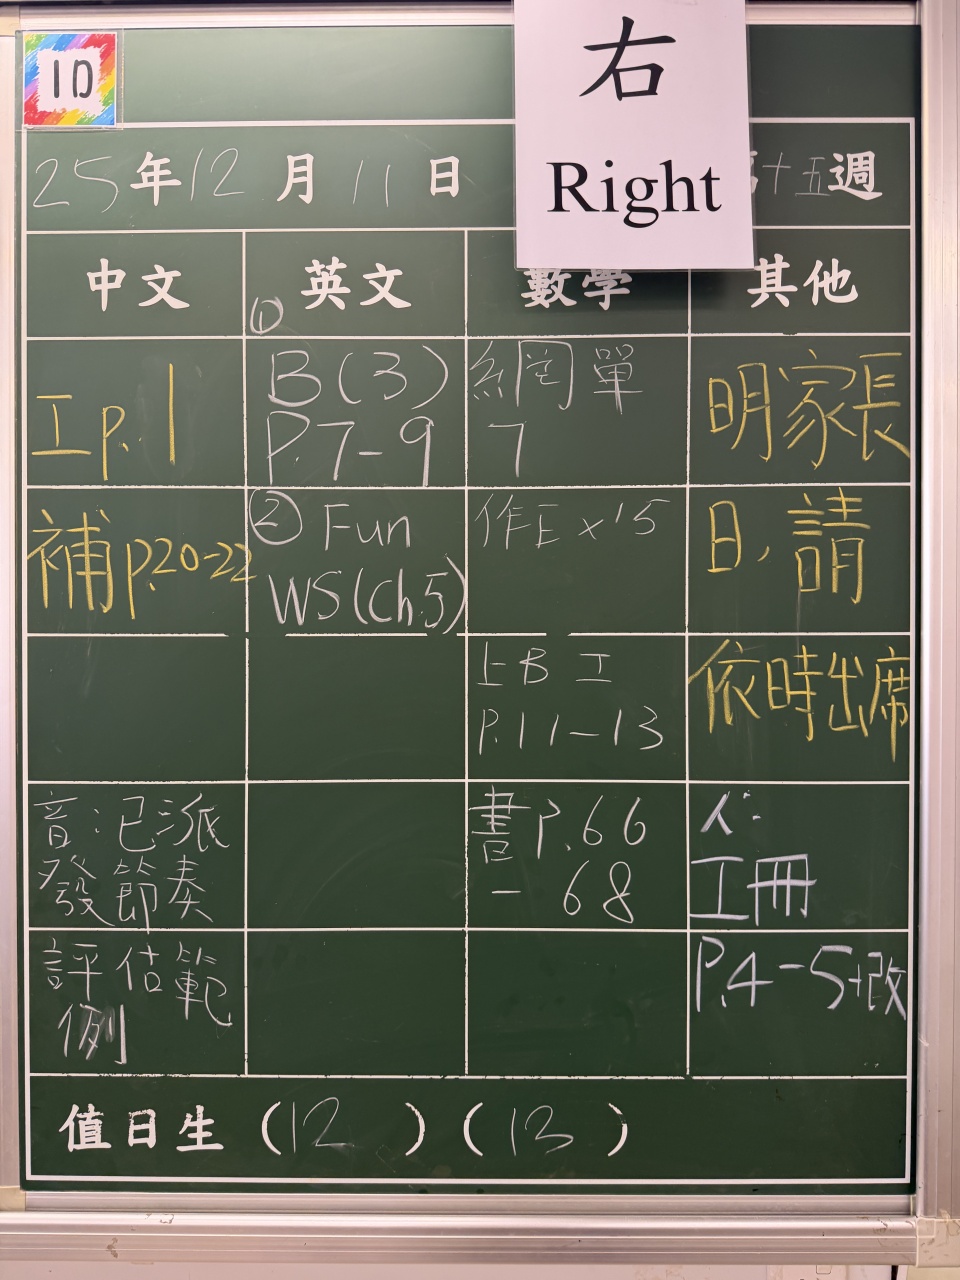 1D
右
Right
25年12月11日
十五週
中文
英文
數學
其他
工 p.1
補 p.20-22
音：已派
發節奏
評估範
例
①
B(3)
P.7-9
② Fun
WS(Ch.5)
網單
7
作Ex15
上B工
P.11-13
書P.66
-68
明家長
日，請
依時出席
人：
工冊
P.4-5+改
值日生 (12) (13)